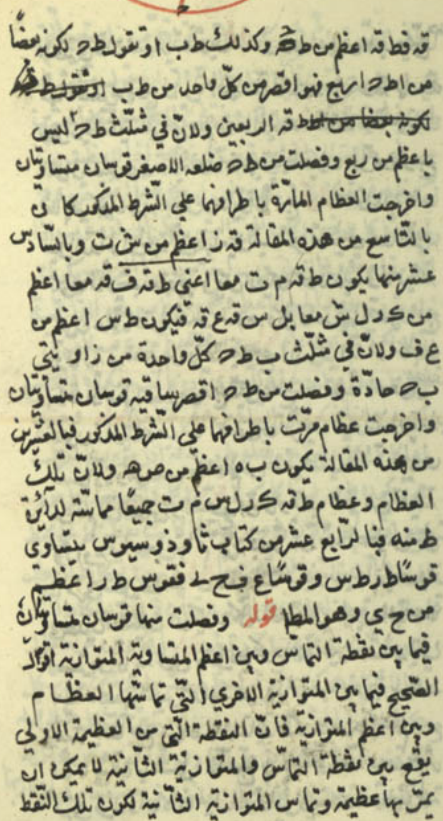 قه فطاقه اعظم من طح وكذلك ط ب او تقول ط ح لكونه بعضًا
من اط ح اربع فهو اقصر من كلّ واحد من ط ب
قه الربعين ولانّ في مثلّث ط ح ليس
باعظم من ربع وفصلت من ط ح ضلعه الاصغر قوسان متساويتان
واخرجت العظام المارّة باطرافهما علي الشّرط المذكور كا
بالتّاسع من هذه المقالة قه ز اعظم من ش ت وبالسّادس
عشر منها يكون ط قه م ت معا اعني ط قه ف قه معا اعظم
من ك د ل ش معا بل س قه ع قه فيكون ط س اعظم من
ع ف ولانّ في مثلّث ب ط ح كلّ واحدة من زاويتي
ب ح حادّة وفصلت من ط ح اقصر ساقيه قوسان متساويتان
واخرجت عظام مرّت باطرافهما علي الشّرط المذكور فبالعشرين
من هذه المقالة يكون ب ه اعظم من ص ه ولانّ تلك
العظام وعظام ط قه ك د ل س م ت جميعًا مماسّة لدآئرة
ط منه فبالرّابع عشر من كتاب ثاوذوسيوس يتساوي
قوسا ط ر ط س وقوسا ع ف ح ي فقوس ط ر اعظم
من ح ي وهو المط قوله وفصلت منها قوسان متساويتان
فيما بين نقطة التماسّ وبين اعظم المتساوية المتوازية اقول
الصّحيح فيما بين المتوازية الاخري الّتي تماسّها العظام
وبين اعظم المتوازية فانّ النقطة الّتي من العظيمة الاولي
يقع بين نقطة التماسّ والمتوازية الثّانية لا يمكن ان
يمرّ بها عظيمة وتماس المتوازية الثّانية لكون تلك النّقط